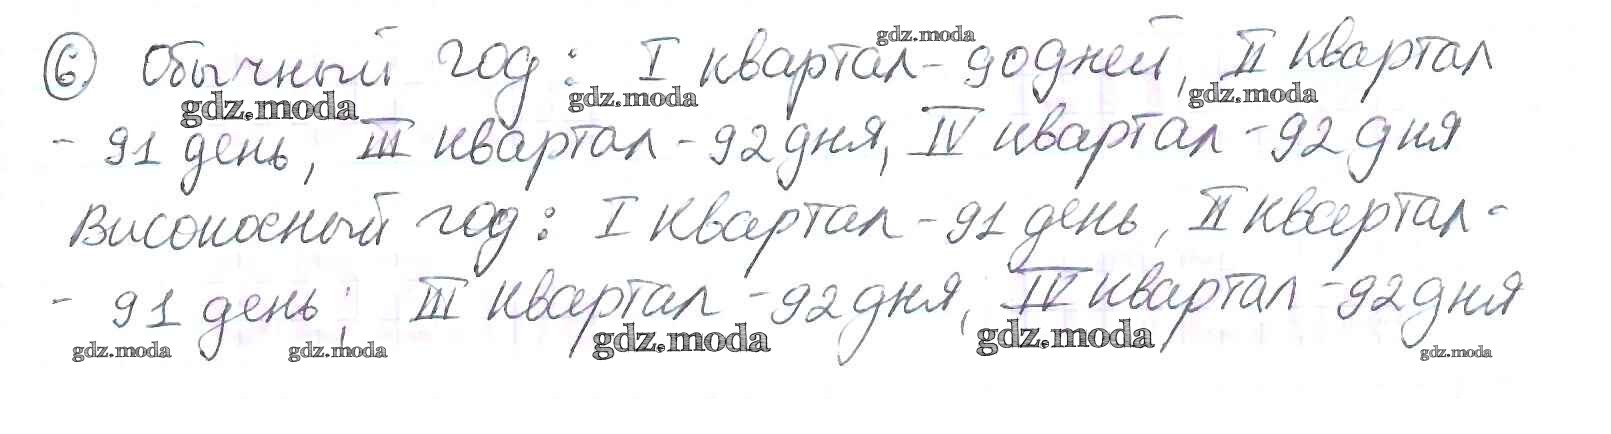 ⑥ Обычный год: I квартал - 90 дней, II квартал
gdz.moda
gdz.moda gdz.moda gdz.moda
- 91 день, III квартал - 92 дня, IV квартал - 92 дня
Високосный год: I квартал - 91 день, II квартал -
- 91 день, III квартал - 92 дня, IV квартал - 92 дня
gdz.moda gdz.moda gdz.moda gdz.moda gdz.moda